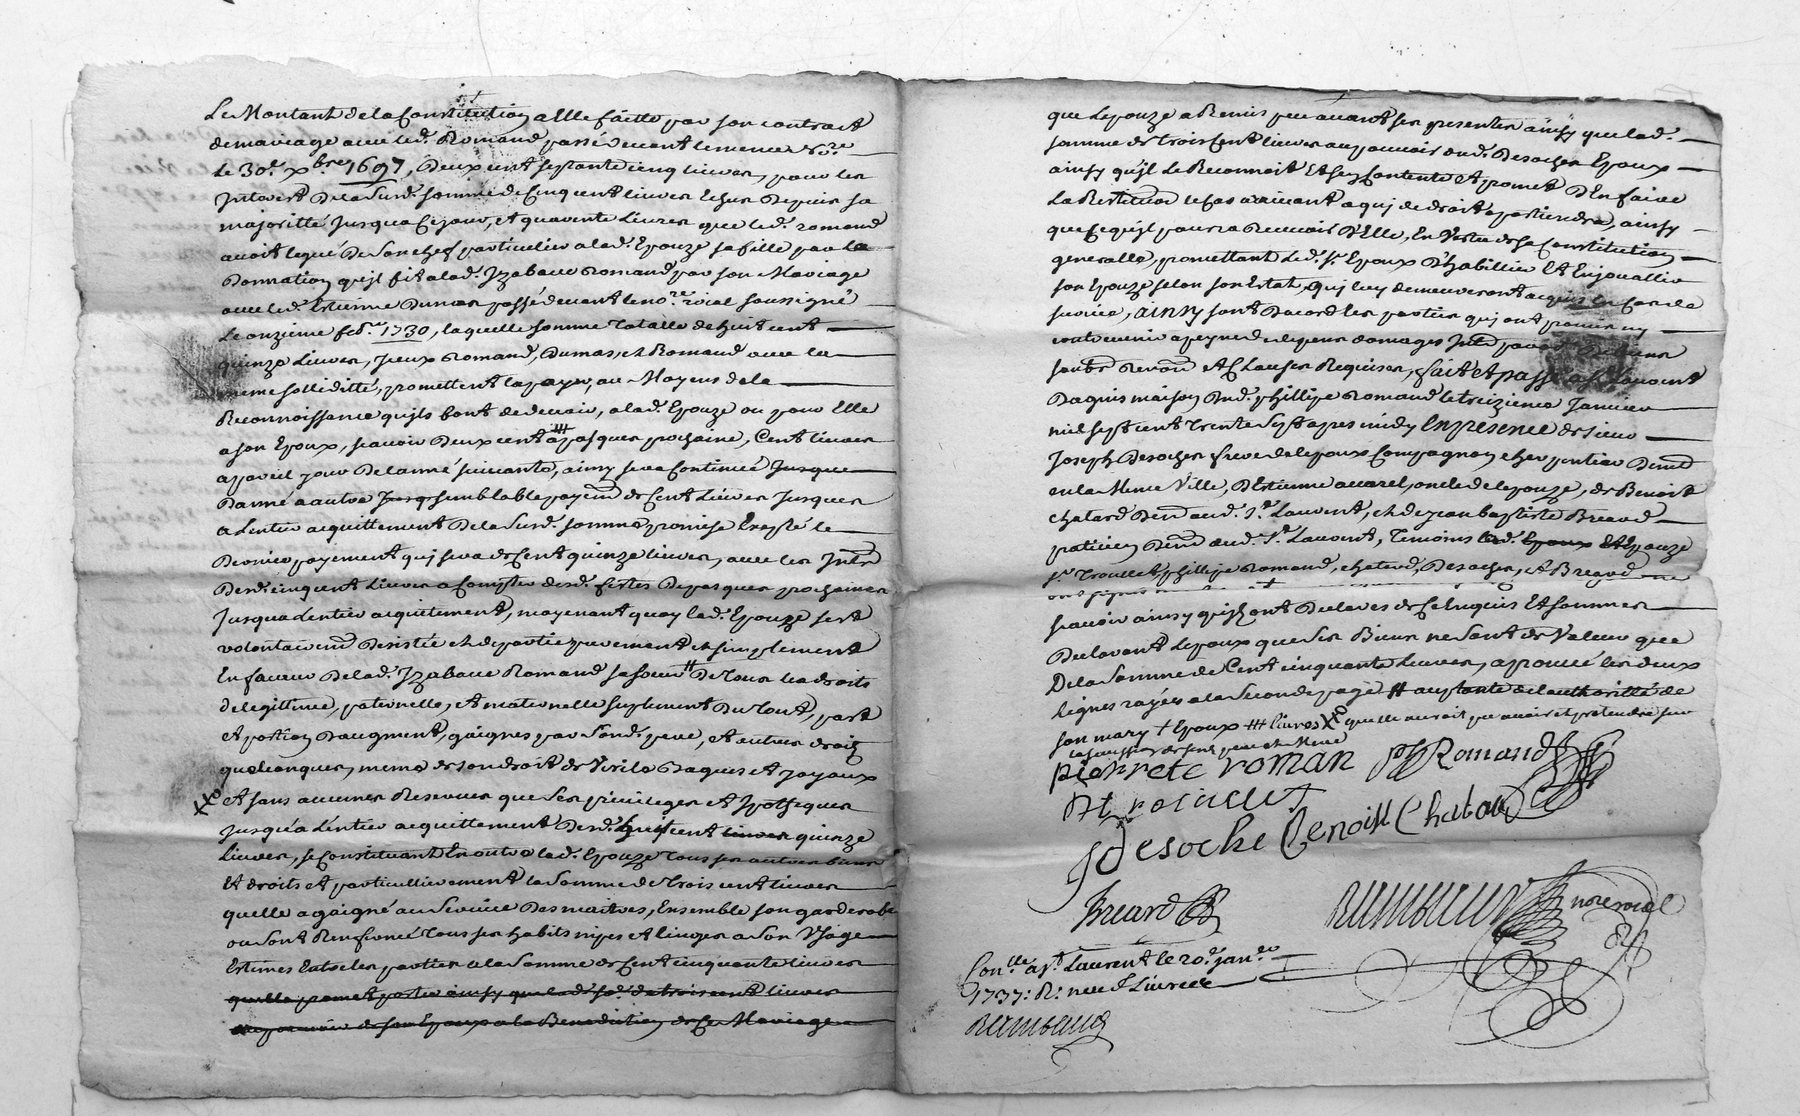 Le Montant de la Constitution a Elle faitte par son contract
de mariage avec led. Romand passé devant le meme nore
le 30e. xbre 1697, Deux cent septante cinq livres, pour les
Interest De la Sud. somme de Cinq cent livres Echus Depuis sa
majoritté Jusqua Ce jour, et quarante Livres que led. romand
avoit legué De Son chef particulier a lad. Epouze sa fille par la
Donnation qu'jl fit a lad. Jzabaux Romand par son Mariage
avec led. Estienne Dumas passé devant le nore roial soussigné
Le onzieme febre 1730, laquelle somme Totalle de huit cent
quinze Livres, Jceux Romand, Dumas, et Romand avec la
meme solliditté, promettent la payer, au Moyens de la
Reconnoissance qu'jls font de devoir, a lad. Epouze ou pour Elle
a son Epoux, scavoir Deux cent # a pasques prochaine, Cent livres
a pareil jour De lanné suivante, ainsy sera Continué Jusque
Danné a autre Jusq semblable payemt de Cent Livres Jusques
a Lentier acquittement De la Susd. somme promise Excepté le
Dernier payement quj sera de Cent quinze livres, avec les Jntts
Desd. cinq cent Livres a Compter desd. festes De pasques prochaines
Jusqua Lentier acquittement, moyenant quoy lad. Epouze s'est
volontairemt Desistée et departie purement et simplement
En faveur De lad. Jzabaux Romand sa soeur # De Tous les droits
de legittime, paternelle, et maternelle suplement Du tout, part
et portion Daugment, gaignés par Sond. pere, et autres droits
quelconques, meme de son droit de Virile Bagues et Joyaux
## Et sans aucunes Reserves que Ses privileges et Jpotheques
Jusqu'a Lentier acquittement Desd. huit cent livres quinze
Livres, se Constituant En outre lad. Epouze Tous ses autres biens
Et droits et particullierement la Somme de Trois cent livres
quelle a gaigné au Service Des maitres, Ensemble son garderobe
ou sont Renfermé Tous ses habits nipes et linges a Son Usage
Estimés Entre les parties a la Somme de Cent cinquante livres
quelle promet porter ainsy que lad. sode. de trois cent livres
au pouvoir de son Epoux a la Benediction de Ce Mariage
que Lepouze a Remis peu avant ses presentes ainsy que lad.
somme de Trois Cent livres au pouvoir dud. Desoches Epoux
ainsy qu'jl le Reconnoit Et sen Contente et promet D'En faire
La Restitution le Cas arrivant a quj de droit apartiendra, ainsy
que Ce qu'jl poura Recevoir D'Elle, En Vertu de sa Constitution
generalle, promettant led. sr. Epoux D'habillier Et Enjouallier
son Epouze selon son Estat, quj luy demeureront acquis En Cas de
survie, ainsy sont Dacord les parties quj ont promis ny
contrevenir a peyne de depens domages
soubs Renon. et Clauses Requises, fait et passé a st. Laurent
Dagnis maison Dud. phillipe Romand le treizieme Janvier
mil sept cent Trente Sept apres midy En presence de sieur
Joseph Desoches frere de lepoux Compagnon cherpentier Demt
en la Meme Ville, D'Estienne avarel, oncle de lepouze, de Benoist
chatard Demt aud. st. Laurent, et de jean baptiste Breard
paticien Demt aud. st. Laurent, Temoins led. Epoux Et Epouze
sr. Troullet, phillipe Romand, chatard, Desoches, et Breard
scavoir ainsy qu'jls ont Declarés de Ce Enquis Et sommés
Declarant Lepoux que Ses Biens ne sont de Valeur que
De la Somme de Cent cinquante Livres, aprouvé les deux
lignes rayées a la Seconde page # acceptante de lauthorité de
son mary + Epoux ### livres ## quelle auroit pu avoir et pretendre sur
la succession de ses pere et Mere
pierrete roman ph Romand
Jdesoche Benoist Chatard
Breard
Raimbaud nore roial
Conlle a st Laurent le 20e. janer
1737: R. neuf Livres
Raimbaud